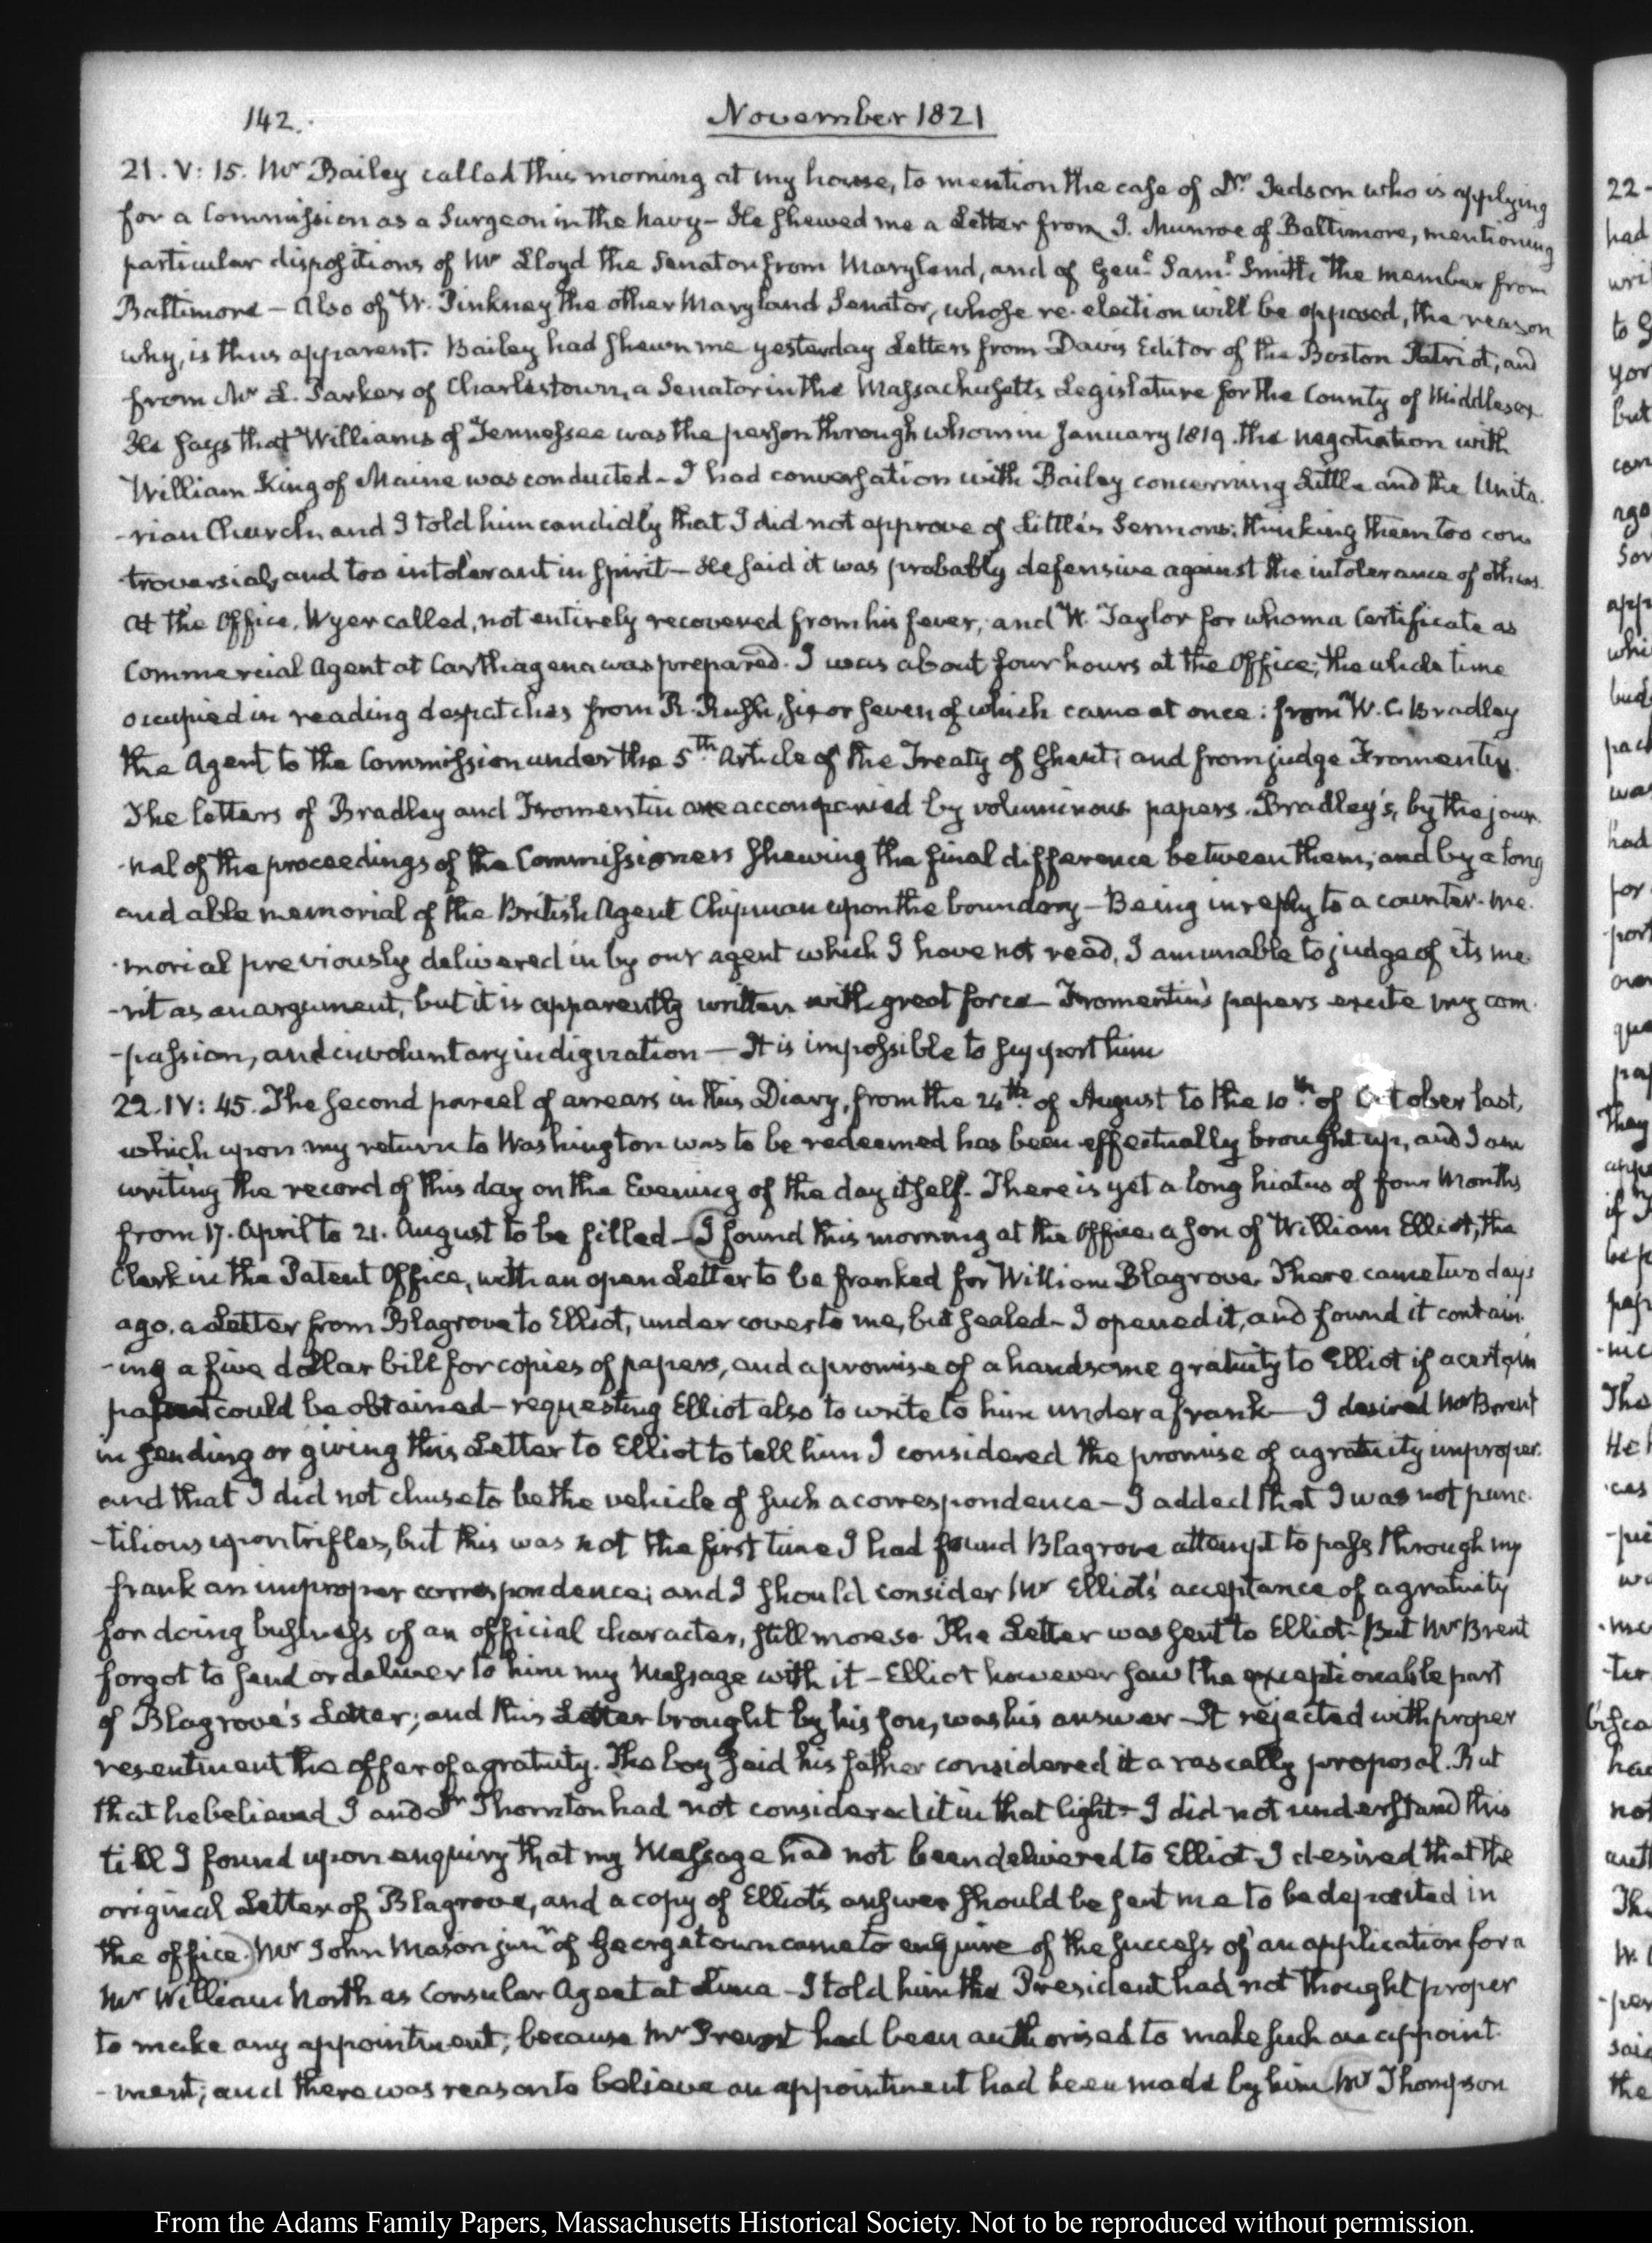 142.
November 1821
21. V: 15. Mr Bailey called this morning at my house, to mention the case of Dr Judson who is applying
for a Commission as a Surgeon in the Navy – He shewed me a Letter from I. Munroe of Baltimore, mentioning
particular dispositions of Mr Lloyd the Senator from Maryland, and of Genl Saml Smith the member from
Baltimore – Also of W. Pinkney the other Maryland Senator, whose re-election will be opposed, the reason
why, is thus apparent. Bailey had shewn me yesterday Letters from Davis Editor of the Boston Patriot, and
from Mr L. Parker of Charlestown, a Senator in the Massachusetts Legislature for the County of Middlesex
He says that Williams of Tennessee was the person through whom in January 1819. the negotiation with
William King of Maine was conducted – I had conversation with Bailey concerning Little and the Unita-
-rian Church, and I told him candidly that I did not approve of Little's Sermons; thinking them too con
troversial, and too intolerant in spirit – He said it was probably defensive against the intolerance of others.
At the Office, Wyer called, not entirely recovered from his fever; and W. Taylor for whom a Certificate as
Commercial Agent at Carthagena was prepared. I was about four hours at the Office; the whole time
occupied in reading despatches from R. Rush, six or seven of which came at once: from W. C. Bradley
the Agent to the Commission under the 5th Article of the Treaty of Ghent; and from judge Fromentin.
The letters of Bradley and Fromentin are accompanied by voluminous papers. Bradley's, by the jour-
-nal of the proceedings of the Commissioners shewing the final difference between them; and by a long
and able memorial of the British Agent Chipman upon the boundary – Being in reply to a counter-me-
-morial previously delivered in by our agent which I have not read, I am unable to judge of its me-
-rit as an argument, but it is apparently written with great force – Fromentin's papers excite my com-
-passion, and involuntary indignation – It is impossible to support him
22. IV: 45. The second parcel of arrears in this Diary, from the 24th of August to the 10th of October last,
which upon my return to Washington was to be redeemed has been effectually brought up, and I am
writing the record of this day on the Evening of the day itself. There is yet a long hiatus of four Months
from 17. April to 21. August to be filled – I found this morning at the Office a son of William Elliot, the
Clerk in the Patent Office, with an open Letter to be franked for William Blagrove. There came two days
ago, a Letter from Blagrove to Elliot, under cover to me, but sealed – I opened it, and found it contain-
-ing a five dollar bill for copies of papers, and a promise of a handsome gratuity to Elliot if a certain
could be obtained – requesting Elliot also to write to him under a frank – I desired Mr Brent
in sending or giving this Letter to Elliot to tell him I considered the promise of a gratuity improper.
and that I did not chuse to be the vehicle of such a correspondence – I added that I was not punc-
-tilious upon trifles, but this was not the first time I had found Blagrove attempt to pass through my
frank an improper correspondence; and I should consider Mr Elliot's acceptance of a gratuity
for doing business of an official character, still more so. The Letter was sent to Elliot – But Mr Brent
forgot to send or deliver to him my Message with it – Elliot however saw the exceptionable part
of Blagrove's Letter; and this Letter brought by his son, was his answer – It rejected with proper
resentment the offer of a gratuity. The boy said his father considered it a rascally proposal. But
that he believed I and Dr Thornton had not considered it in that light – I did not understand this
till I found upon enquiry that my Message had not been delivered to Elliot – I desired that the
original Letter of Blagrove, and a copy of Elliot's answer should be sent me to be deposited in
the office. Mr John Mason junr of Georgetown came to enquire of the success of an application for a
Mr William North as Consular Agent at Lima – I told him the President had not thought proper
to make any appointment; because Mr Prevost had been authorised to make such an appoint-
-ment; and there was reason to believe an appointment had been made by him Mr Thompson
From the Adams Family Papers, Massachusetts Historical Society. Not to be reproduced without permission.